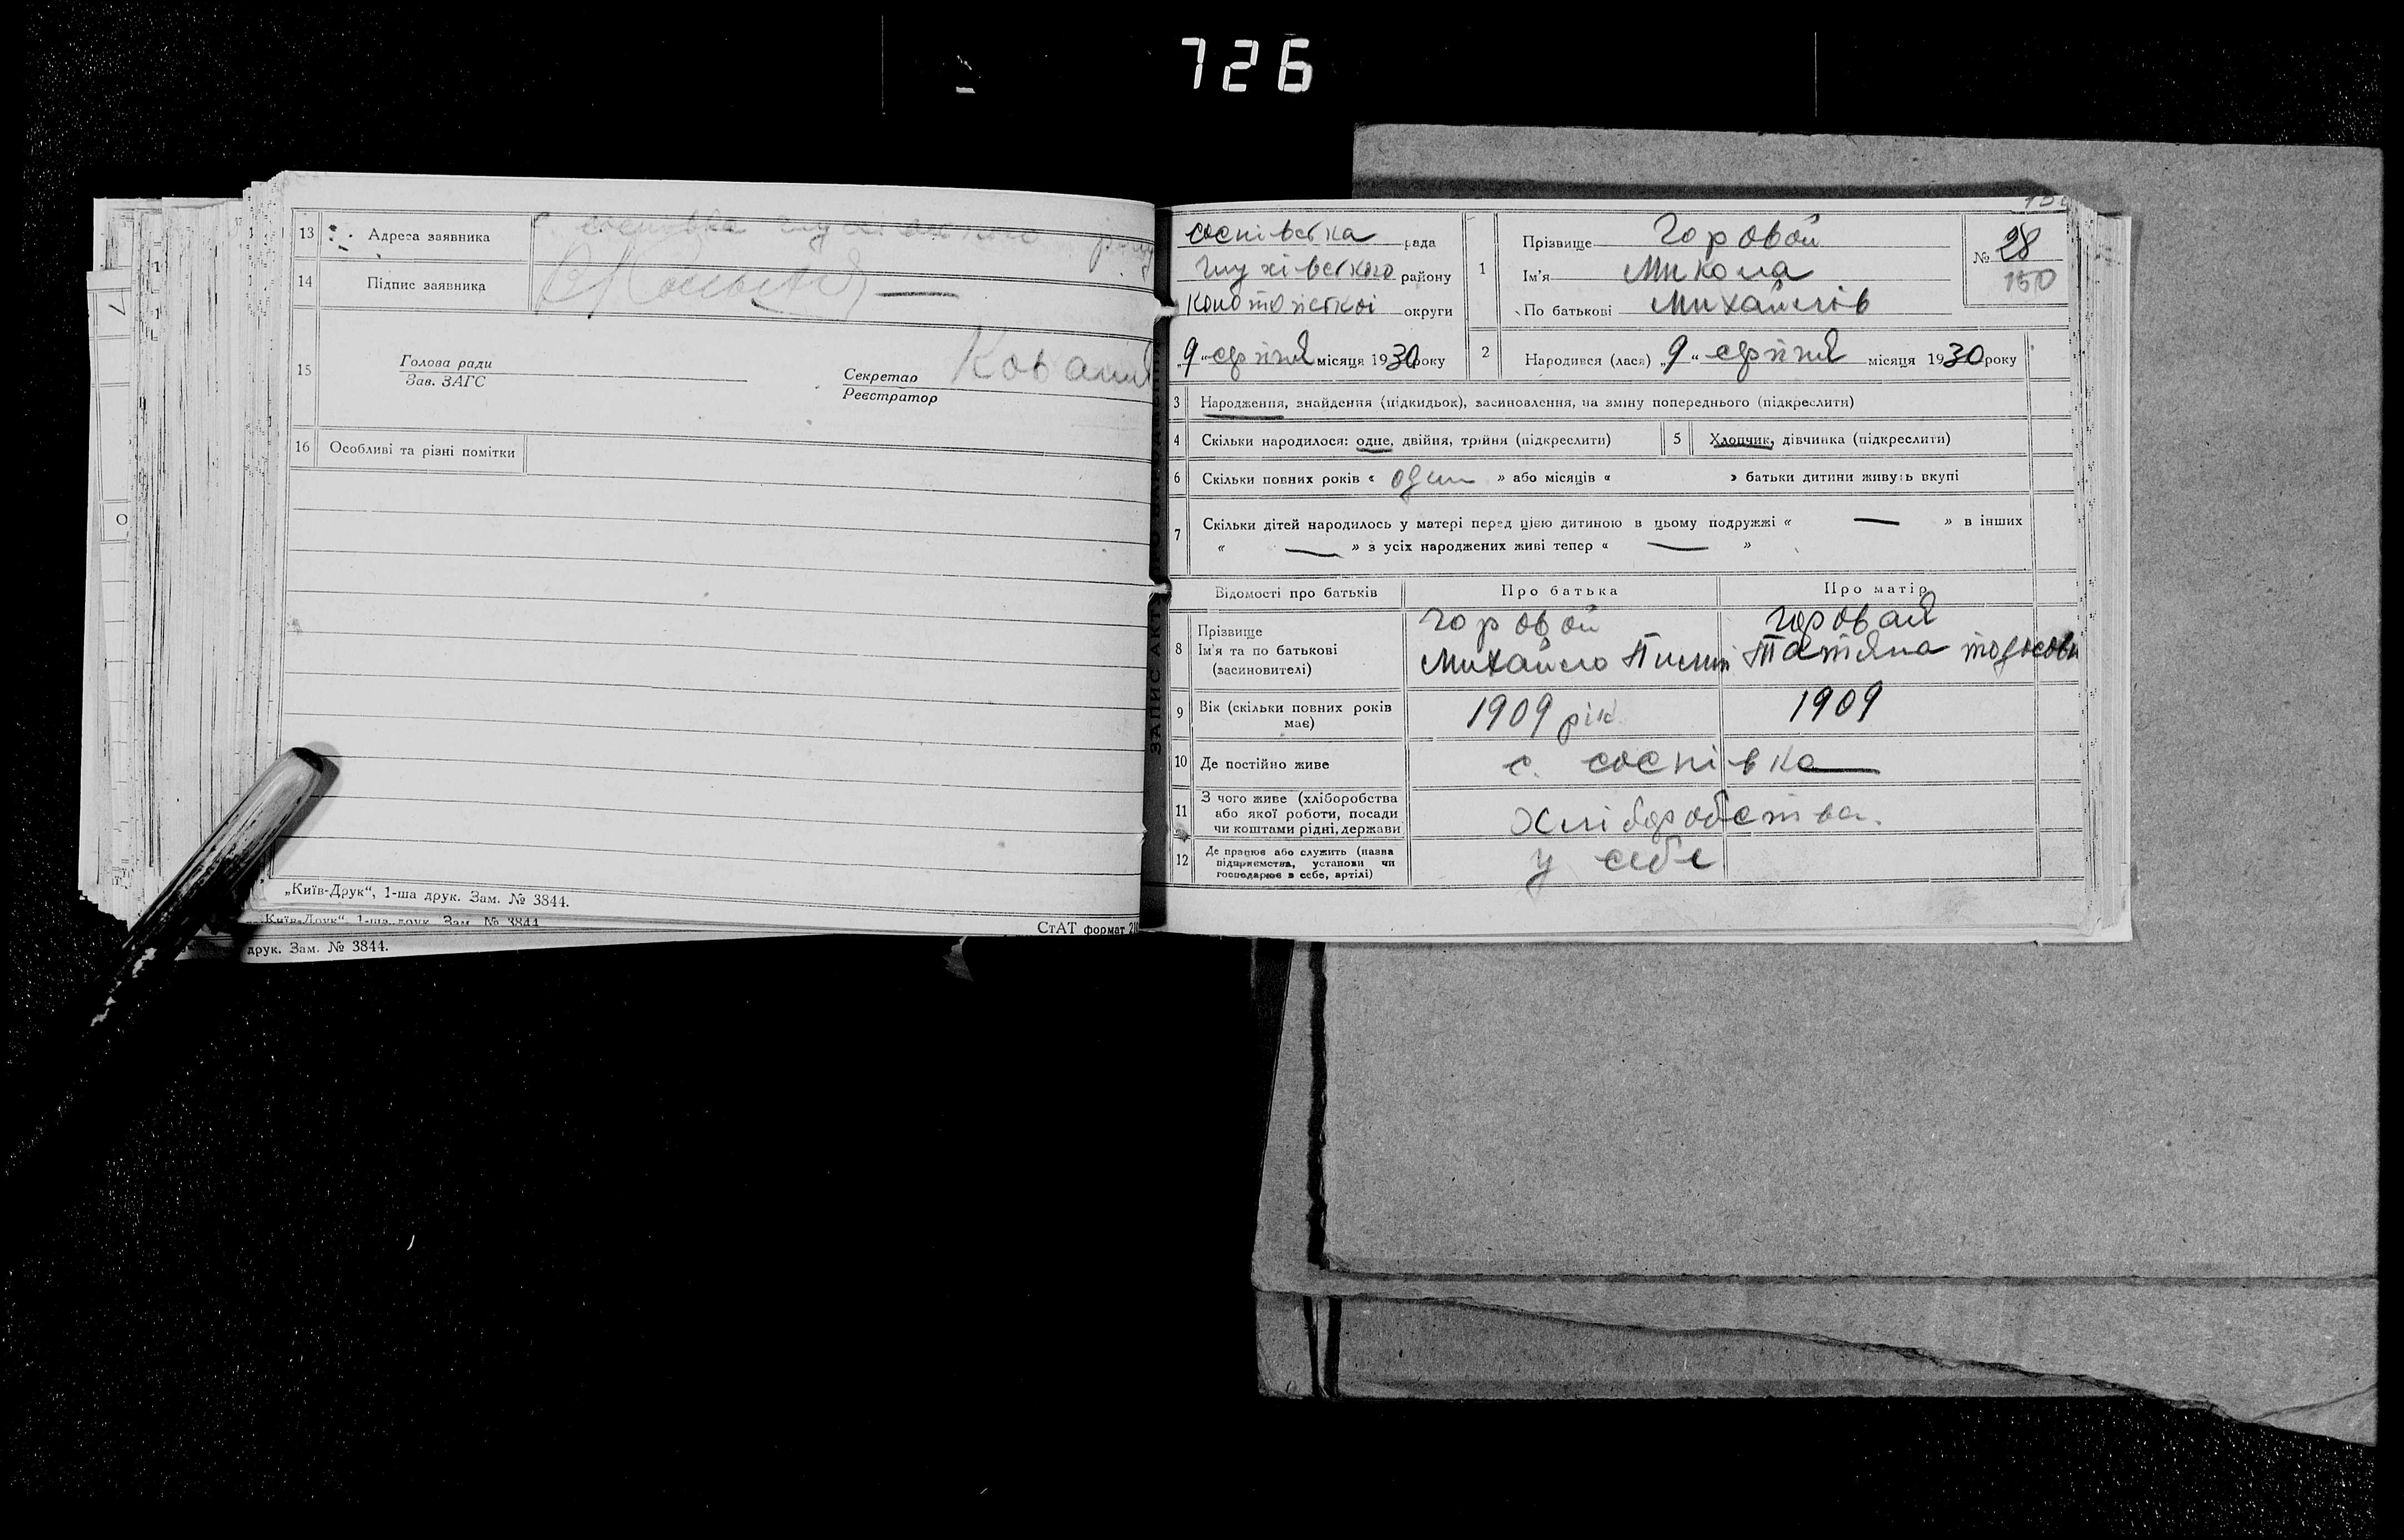 726
13 Адреса заявника с.
14 Підпис заявника
15 Голова ради
Зав. ЗАГС
Секретар
Реєстратор
16 Особливі та різні помітки
„Київ-Друк“, 1-ша друк. Зам. № 3844.
„Київ-Друк“, 1-ша друк. Зам. № 3844
СтАТ формат
друк. Зам. № 3844.
ЗАПИС АКТ
соснівська рада
глухівського району
конотопської округи
„9“ серпня місяця 1930 року
1 Прізвище Горовой
Ім'я Микола
По батькові Михайлів
№ 28
150
2 Народився (лася) „9“ серпня місяця 1930 року
3 Народження, знайдення (підкидьок), засиновлення, на зміну попереднього (підкреслити)
4 Скільки народилося: одне, двійня, трійня (підкреслити)
5 Хлопчик, дівчинка (підкреслити)
6 Скільки повних років « один » або місяців « » батьки дитини живуть вкупі
7 Скільки дітей народилось у матері перед цією дитиною в цьому подружжі « — » в інших
« — » з усіх народжених живі тепер « — »
Відомості про батьків Про батька Про матір
8 Прізвище
Ім'я та по батькові
(засиновителі)
Горовой
Михайло
Горовая
Татяна
9 Вік (скільки повних років має) 1909 рік 1909
10 Де постійно живе с. соснівка
11 З чого живе (хліборобства
або якої роботи, посади
чи коштами рідні, держави
хліборобства.
12 Де працює або служить (назва
підприємства, установи чи
господарює в себе, артілі)
у себе